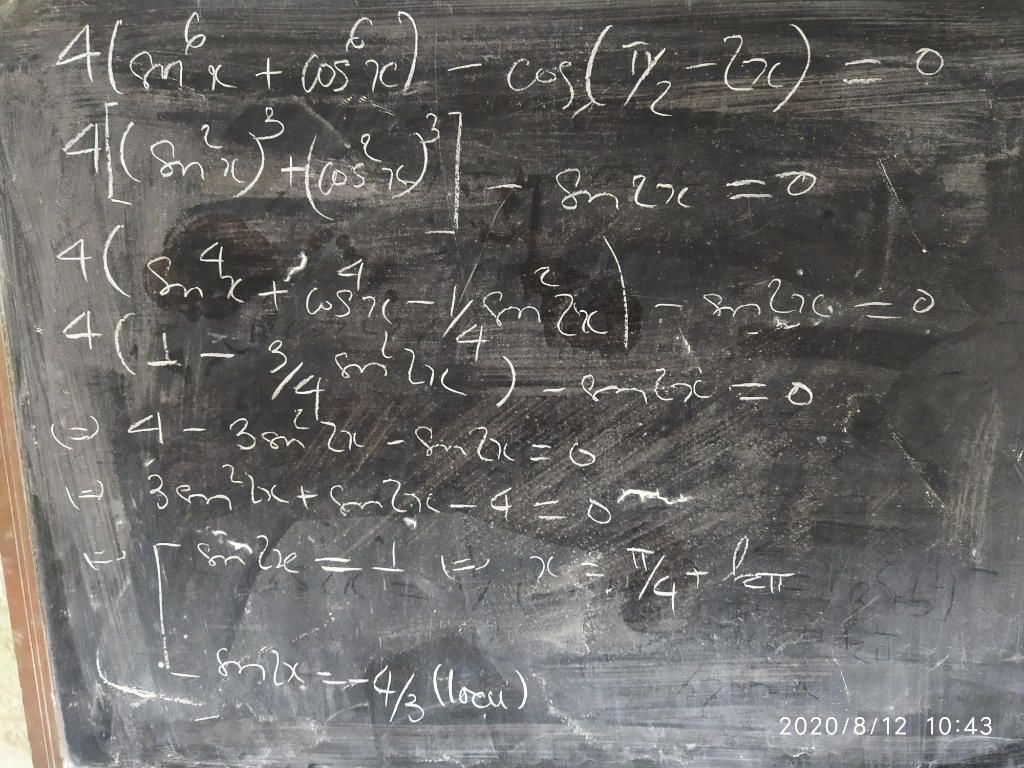 4(sin⁶x + cos⁶x) - cos(π/2 - 2x) = 0
4[(sin²x)³ + (cos²x)³] - sin2x = 0
4(sin⁴x + cos⁴x - 1/4 sin²2x) - sin2x = 0
4(1 - 3/4 sin²2x) - sin2x = 0
⇔ 4 - 3sin²2x - sin2x = 0
⇔ 3sin²2x + sin2x - 4 = 0
⇔ [ sin2x = 1 ⇔ x = π/4 + kπ
sin2x = -4/3 (loại)
2020/8/12 10:43